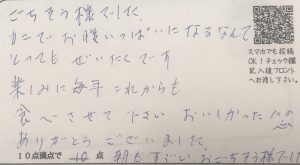 ごちそう様でした。
かにでお腹いっぱいになるなんて
とってもぜいたくです
楽しみに毎年これからも
食べさせて下さい おいしかったによ
ありがとうございました。
10点満点で 10 点 朝もすごい おごちそう様でし
スマホでも投稿
OK!チェック欄
記入後フロント
へお渡し下さい。